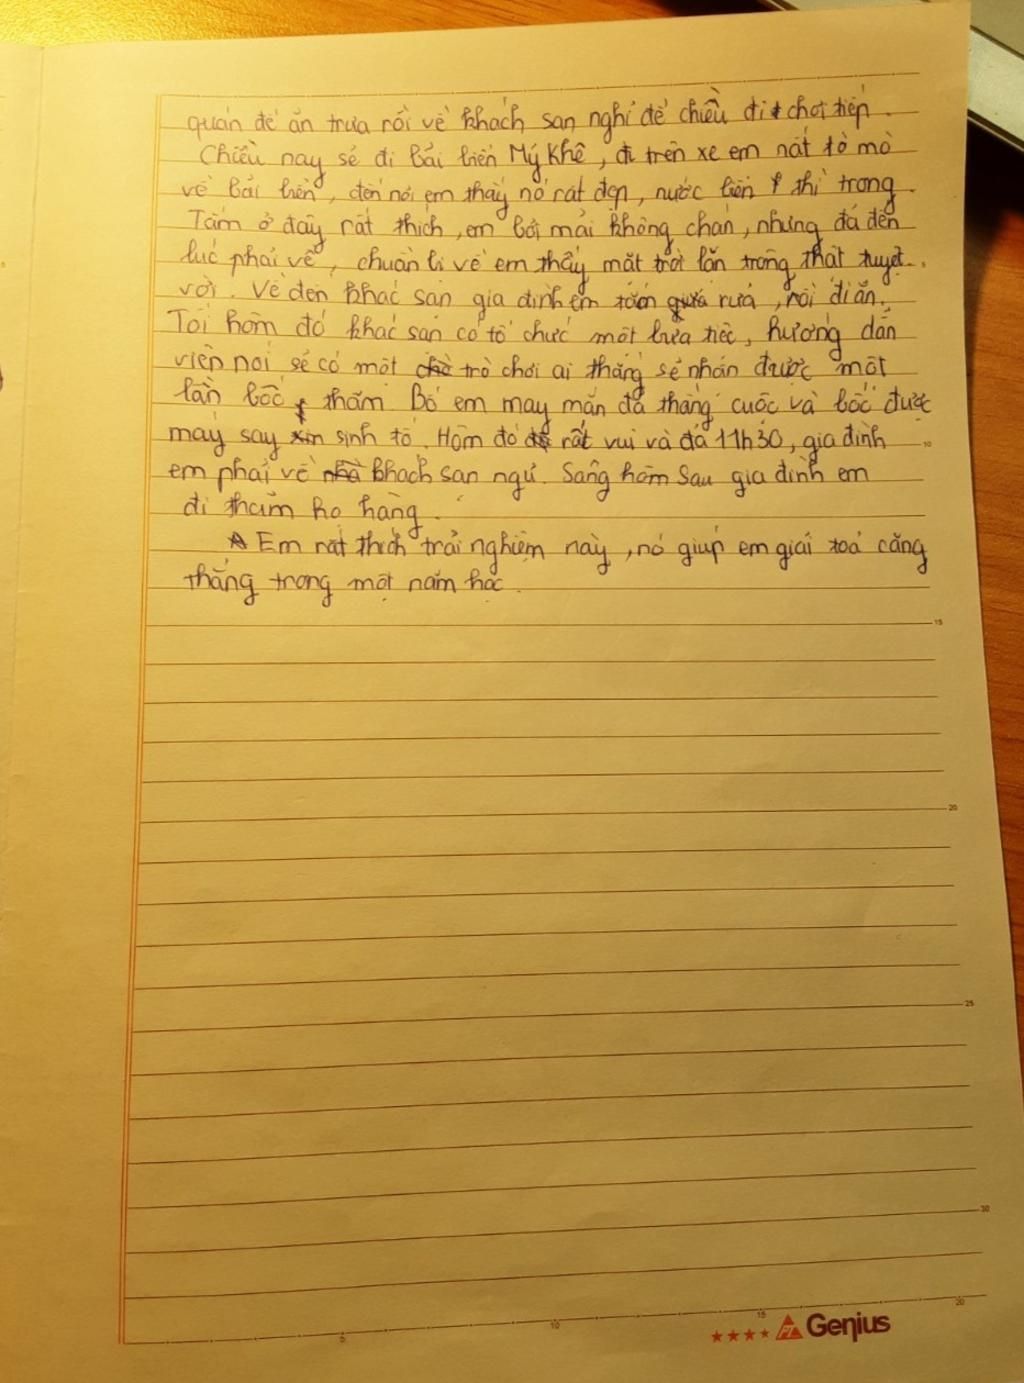 quán để ăn trưa rồi về khách sạn nghỉ để chiều đi chơi tiếp.
Chiều nay sẽ đi bãi biển Mỹ Khê, đi trên xe em rất tò mò
về bãi biển, đến nơi em thấy nó rất đẹp, nước biển thì trong.
Tắm ở đây rất thích, em bơi mãi không chán, nhưng đã đến
lúc phải về, chuẩn bị về em thấy mặt trời lặn trông thật tuyệt
vời. Về đến khác sạn gia đình em rửa, rồi đi ăn.
Tối hôm đó khác sạn có tổ chức một bữa tiệc, hướng dẫn
viên nói sẽ có một trò chơi ai thắng sẽ nhận được một
lần bốc thăm. Bố em may mắn đã thắng cuộc và bốc được
máy say sinh tố. Hôm đó rất vui và đã 11h30, gia đình
em phải về khách sạn ngủ. Sáng hôm sau gia đình em
đi thăm họ hàng.
Em rất thích trải nghiệm này, nó giúp em giải toả căng
thẳng trong một năm học.
5
10
15
20
10
15
20
25
30
Genius